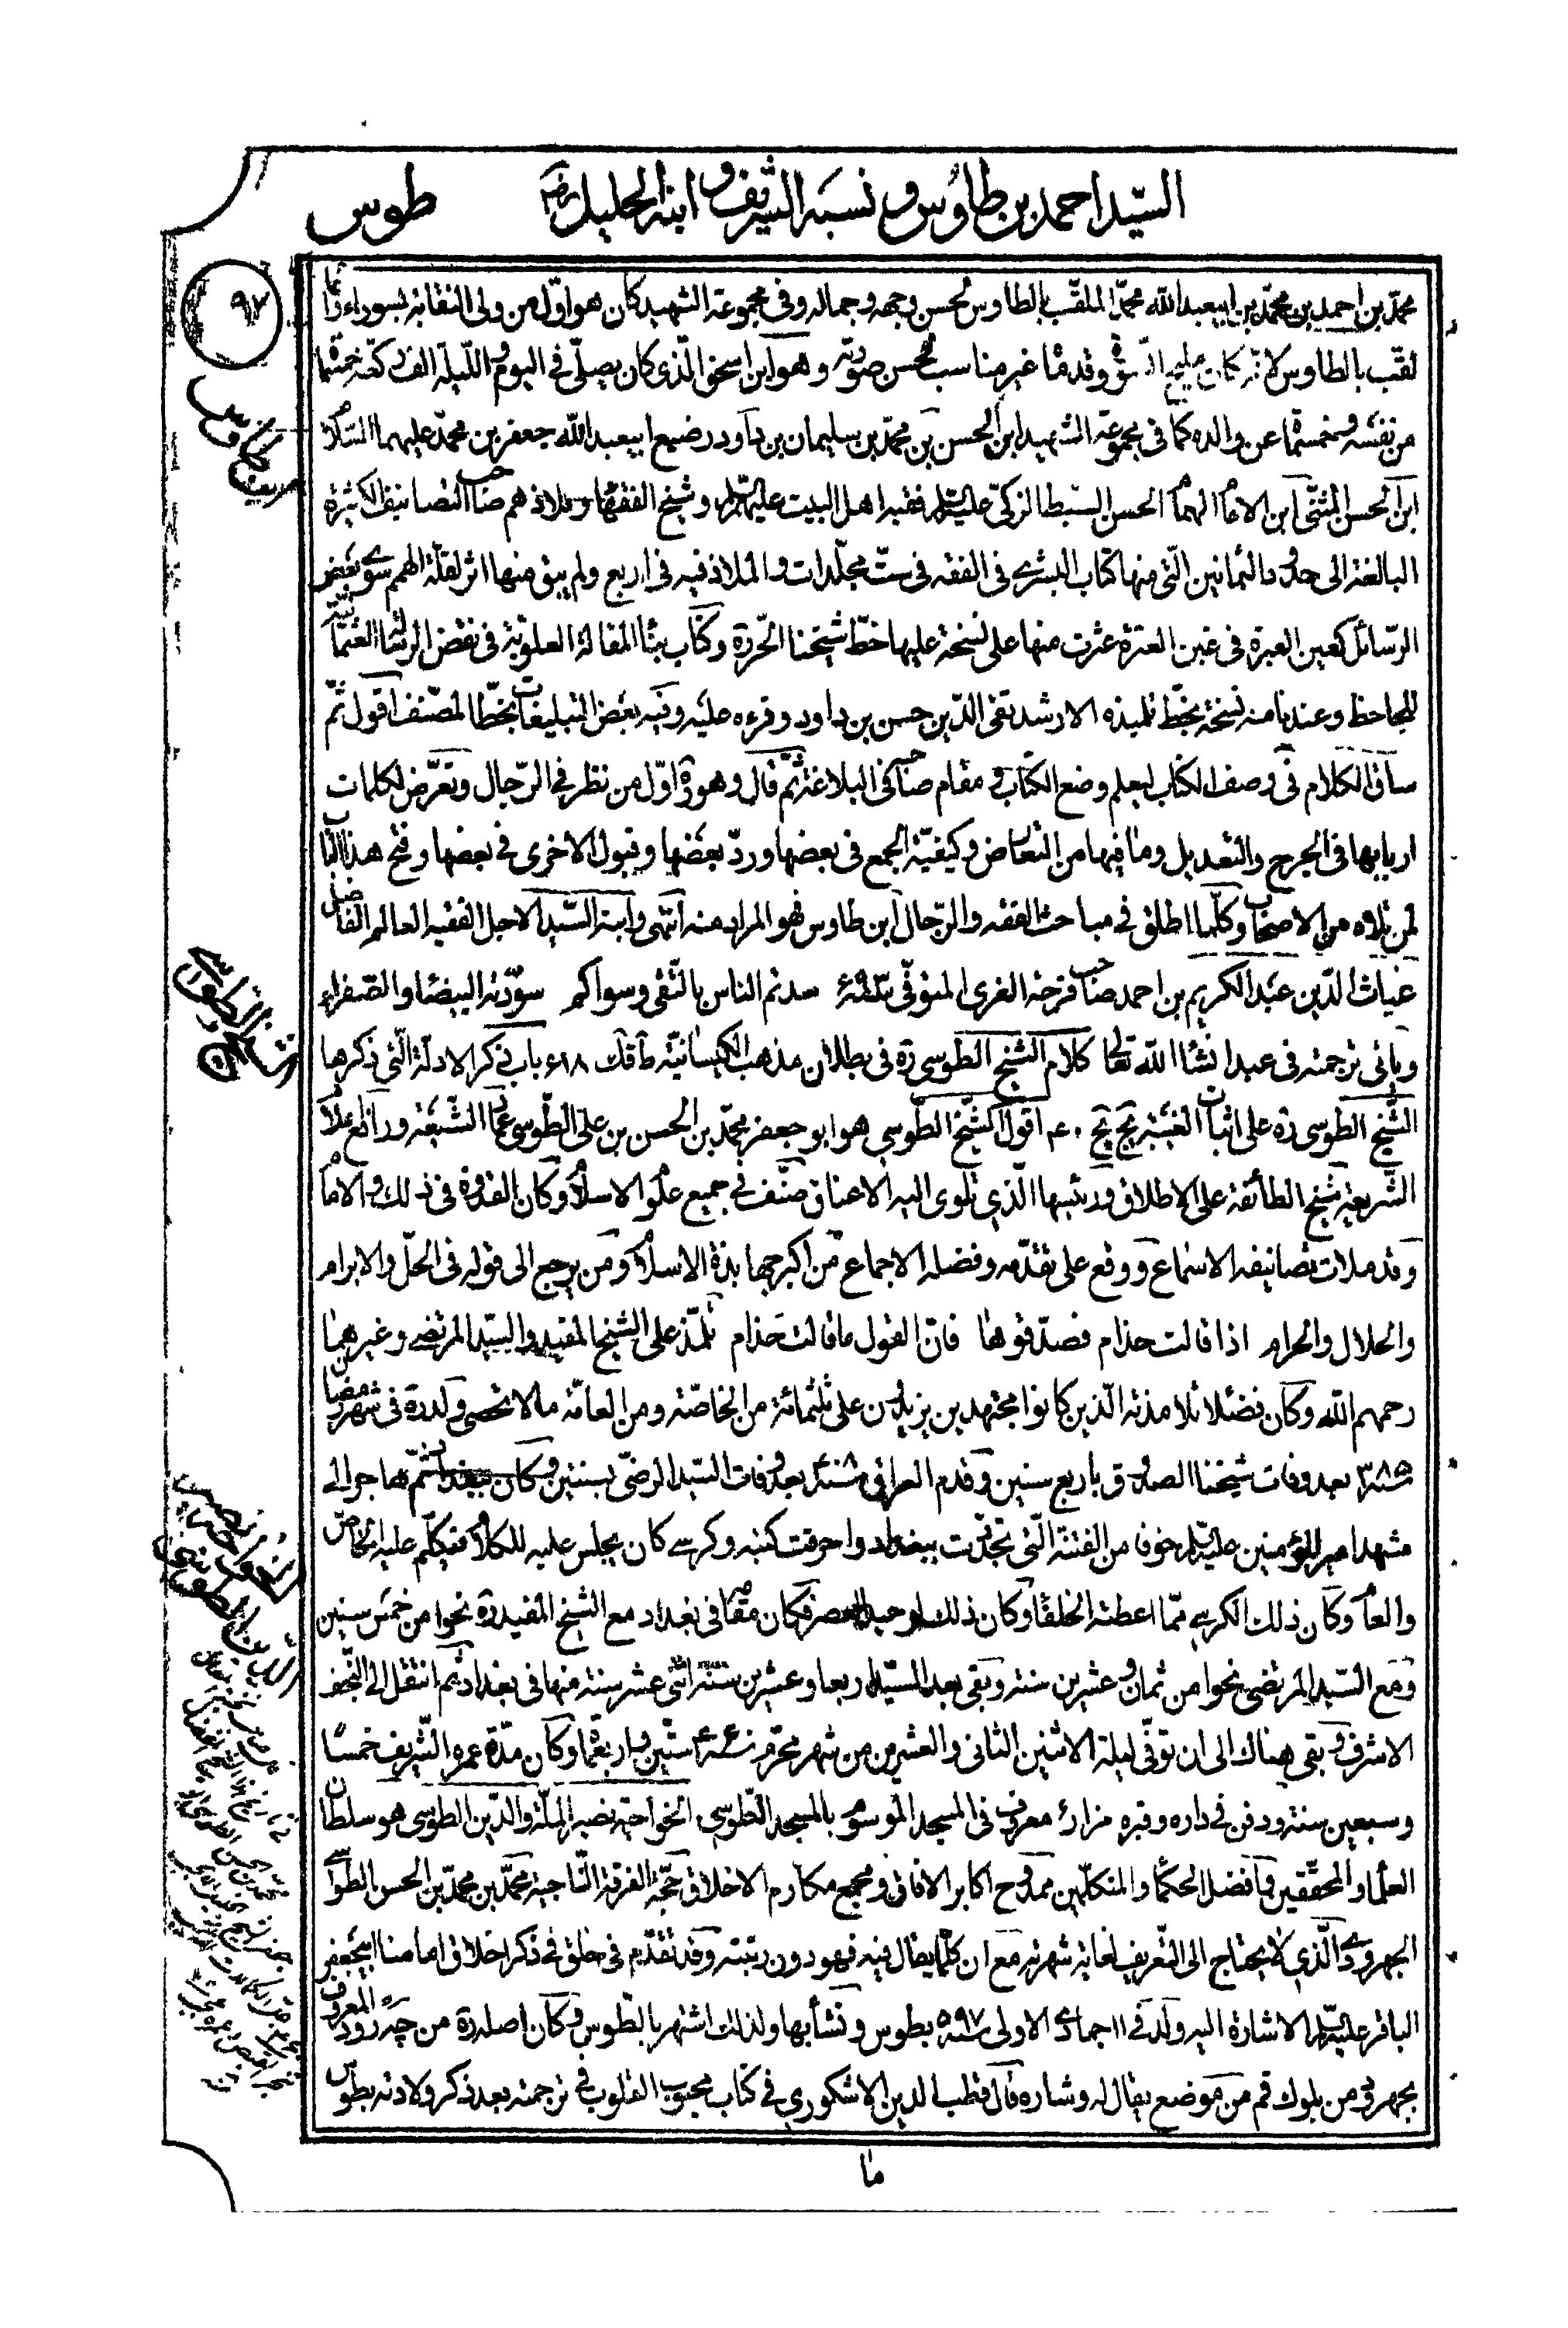 السيّد احمد بن طاوس و نسبه الشريف و ابنه الجليل ره
طوس
٩٧
محمّد بن احمد بن محمّد بن ابيعبد الله محمّد الملقّب بالطاوس لحسن وجهه وجماله وفي مجموعة الشهيد كان هو اوّل من ولى النقابة بسوراء وانّما
لقّب بالطاوس لانّه كان مليح الصّورة وقدماه غير مناسب لحسن صورته وهو ابن اسحق الّذى كان يصلّى فى اليوم واللّيلة الف ركعة خمسمائة
من نفسه وخمسمائة عن والده كما فى مجموعة الشهيد ابن الحسن بن محمّد بن سليمان بن داود رضيع ابيعبد الله جعفر بن محمّد عليهما السّلام
ابن الحسن المثنّى ابن الامام الهمام الحسن السّبط الزكىّ عليه السّلم فقيه اهل البيت عليهم السّلم وشيخ الفقهاء وملاذهم صاحب التصانيف الكثيرة
البالغة الى حدود الثمانين الّتى منها كتاب البشرى فى الفقه فى ستّ مجلّدات والملاذ فيه فى اربع ولم يبق منها اثر لقلّة الهمم سوى بعض
الرّسائل كعين العبرة فى غبن العترة عثرت منها على نسخة عليها خطّ شيخنا الحرّ ره وكتاب بناء المقالة العلويّة فى نقض الرسالة العثمانيّة
للجاحظ وعندنا منه نسخة بخطّ تلميذه الارشد تقى الدّين حسن بن داود وقرءه عليه وفيه بعض التبليغات بخطّ المصنّف اقول ثمّ
ساق الكلام فى وصف الكتاب ليعلم وضع الكتاب ومقام صاحبه فى البلاغة ثمّ قال وهو ره اوّل من نظر فى الرّجال وتعرّض لكلمات
اربابها فى الجرح والتعديل وما فيها من التعارض وكيفيّة الجمع فى بعضها وردّ بعضها وقبول الاخرى فى بعضها وفتح هذا الباب
لمن تلاه من الاصحاب وكلّما اطلق فى مباحث الفقه والرّجال ابن طاوس فهو المراد منه انتهى وابنه السّيد الاجل الفقيه العالم الفاضل
غياث الدّين عبد الكريم بن احمد صاحب فرحة الغرى المتوفّى سدتم الناس بالتّقى وسواكم سوّدته البيضاء والصّفراء
ويأتى ترجمته فى عبد انشاء الله تعالى كلام الشيخ الطوسى ره فى بطلان مذهب الكيسانيّة باب ذكر الادلّة الّتى ذكرها
الشّيخ الطوسى ره على اثبات الغيبة اقول الشّيخ الطّوسى هو ابو جعفر محمّد بن الحسن بن على الطّوسى عماد الشّيعة ورافع اعلام
الشّريعة شيخ الطائفة على الاطلاق ورئيسها الّذى تلوى اليه الاعناق صنّف فى جميع علوم الاسلام وكان القدوة فى ذلك والامام
وقد ملات تصانيفه الاسماع ووقع على تقدّمه وفضله الاجماع من اكبر جهابذة الاسلام ومن يرجع الى قوله فى الحلّ والابرام
والحلال والحرام اذا قالت حذام فصدّقوها فانّ القول ما قالت حذام تلمّذ على الشيخ المفيد والسيّد المرتضى وغيرهما
رحمهم الله وكان فضلاء تلامذته الّذين كانوا مجتهدين يزيدون على ثلثمائة من الخاصّة ومن العامّة ما لا تحصى ولد ره فى شهر رمضان
سنة ٣٨٥ بعد وفات شيخنا الصدوق باربع سنين وقدم العراق سنة ٤٠٨ بعد وفات السيّد الرضىّ بسنتين وكان ببغداد ثمّ هاجر الى
مشهد امير المؤمنين عليه السّلم خوفا من الفتنة الّتى تجدّدت ببغداد واحرقت كتبه وكرسى كان يجلس عليه للكلام فيكلّم عليه الخاصّ
والعام وكان ذلك الكرسى ممّا اعطته الخلفاء وكان ذلك لوحيد العصر فكان مقامه فى بغداد مع الشيخ المفيد ره نحوا من خمس سنين
ومع السّيد المرتضى نحوا من ثمان وعشرين سنة وبقى بعد السيّد اربعا وعشرين سنة اثنى عشر سنة منها فى بغداد ثم انتقل الى النّجف
الاشرف وبقى هناك الى ان توفّى ليلة الاثنين الثانى والعشرين من شهر محرّم سنة ٤٦٠ ستّين واربعمائة وكان مدّة عمره الشّريف خمسا
وسبعين سنة ودفن فى داره وقبره مزار معروف فى المسجد الموسوم بالمسجد الطّوسى الخواجة نصير الملّة والدّين الطوسى هو سلطان
العلماء والمحقّقين وافضل الحكماء والمتكلّمين ممدوح اكابر الافاق ومجمع مكارم الاخلاق حجّة الفرقة النّاجية محمّد بن محمّد بن الحسن الطوسى
الجهرودى الّذى لا يحتاج الى التّعريف لغاية شهرته مع ان كلّما يقال فيه فهو دون رتبته وقد تقدّم فى خلق فى ذكر اخلاق امامنا ابيجعفر
الباقر عليه السّلم الاشارة اليه ولد فى ١١ جمادى الاولى سنة ٥٩٧ بطوس ونشأ بها ولذلك اشتهر بالطّوسى وكان اصله ره من چه رود المعروف
بجهرود من بلوك قم من موضع يقال له وشاره قال قطب الدين الاشكورى فى كتاب محبوب القلوب فى ترجمته بعد ذكر ولادته بطوس
ما